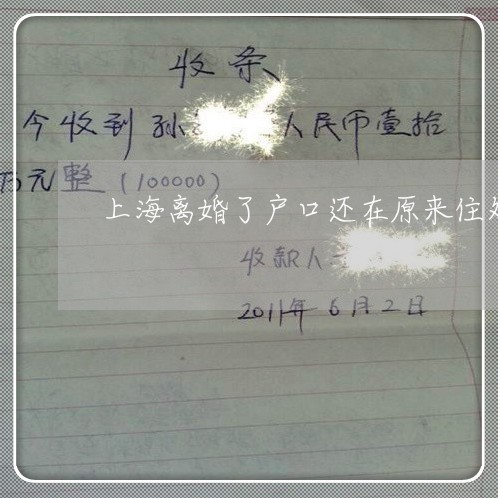 收条
今收到孙 人民币壹拾
万元整(100000)
上海离婚了户口还在原来住处
收款人
2011年6月2日